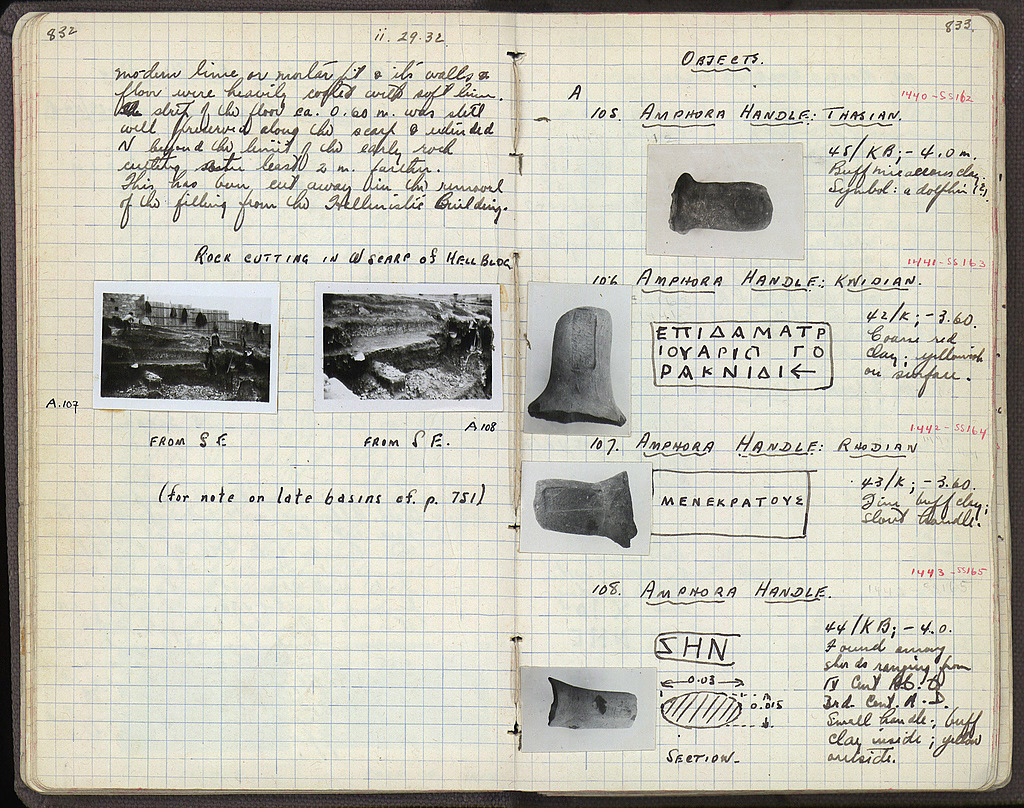 832
ii. 29.32
modern lime or mortar pit & its walls &
floor were heavily coated with soft lime.
strip of the floor ca. 0.60 m. was still
well preserved along the scarp & extended
N beyond the limit of the early rock
cutting at least 2 m. further.
This has been cut away in the removal
of the filling from the Hellenistic Building.
ROCK CUTTING IN W SCARP of HELL BLDG
A.107
A 108
FROM S E
FROM S E.
(for note on late basins cf. p. 751)
833.
OBJECTS.
A
1440-SS162
105. AMPHORA HANDLE: THASIAN.
45/KB; - 4.0 m.
Buff micaceous clay.
Symbol: a dolphin (?).
1441-SS163
106. AMPHORA HANDLE: KNIDIAN.
42/K; - 3.60.
Coarse red
clay; yellowish
on surface.
ΕΠΙΔΑΜΑΤΡ
ΙΟΥΑΡΙΣ ΓΟ
ΡΑΚΝΙΔΙ←
1442-SS164
107. AMPHORA HANDLE: RHODIAN
43/K; - 3.60.
Fine buff clay;
stout handle.
ΜΕΝΕΚΡΑΤΟΥΣ
1443-SS165
108. AMPHORA HANDLE.
44/KB; - 4.0.
Found among
sherds ranging from
IV Cent B.C. to
3rd Cent. A.D.
Small handle; buff
clay inside; yellow
outside.
SHN
0.03
0.015
SECTION.